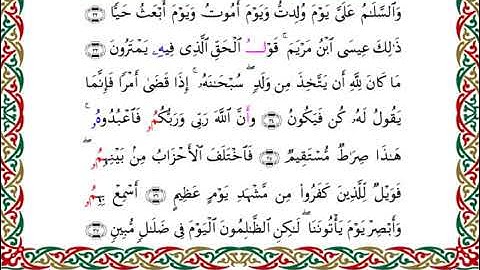 وَٱلسَّلَٰمُ عَلَىَّ يَوْمَ وُلِدتُّ وَيَوْمَ أَمُوتُ وَيَوْمَ أُبْعَثُ حَيًّا
ذَٰلِكَ عِيسَى ٱبْنُ مَرْيَمَ ۚ قَوْلُ ٱلْحَقِّ ٱلَّذِى فِيهِۦ يَمْتَرُونَ
مَا كَانَ لِلَّهِ أَن يَتَّخِذَ مِن وَلَدٍ ۖ سُبْحَٰنَهُۥ ۚ إِذَا قَضَىٰ أَمْرًا فَإِنَّمَا
يَقُولُ لَهُۥ كُن فَيَكُونُ وَأَنَّ ٱللَّهَ رَبِّى وَرَبُّكُمُۥ فَٱعْبُدُوهُۥ ۚ
هَٰذَا صِرَٰطٌ مُّسْتَقِيمٌ فَٱخْتَلَفَ ٱلْأَحْزَابُ مِنۢ بَيْنِهِمُۥ ۖ
فَوَيْلٌ لِّلَّذِينَ كَفَرُوا۟ مِن مَّشْهَدِ يَوْمٍ عَظِيمٍ أَسْمِعْ بِهِمُۥ
وَأَبْصِرْ يَوْمَ يَأْتُونَنَا ۖ لَٰكِنِ ٱلظَّٰلِمُونَ ٱلْيَوْمَ فِى ضَلَٰلٍ مُّبِينٍ